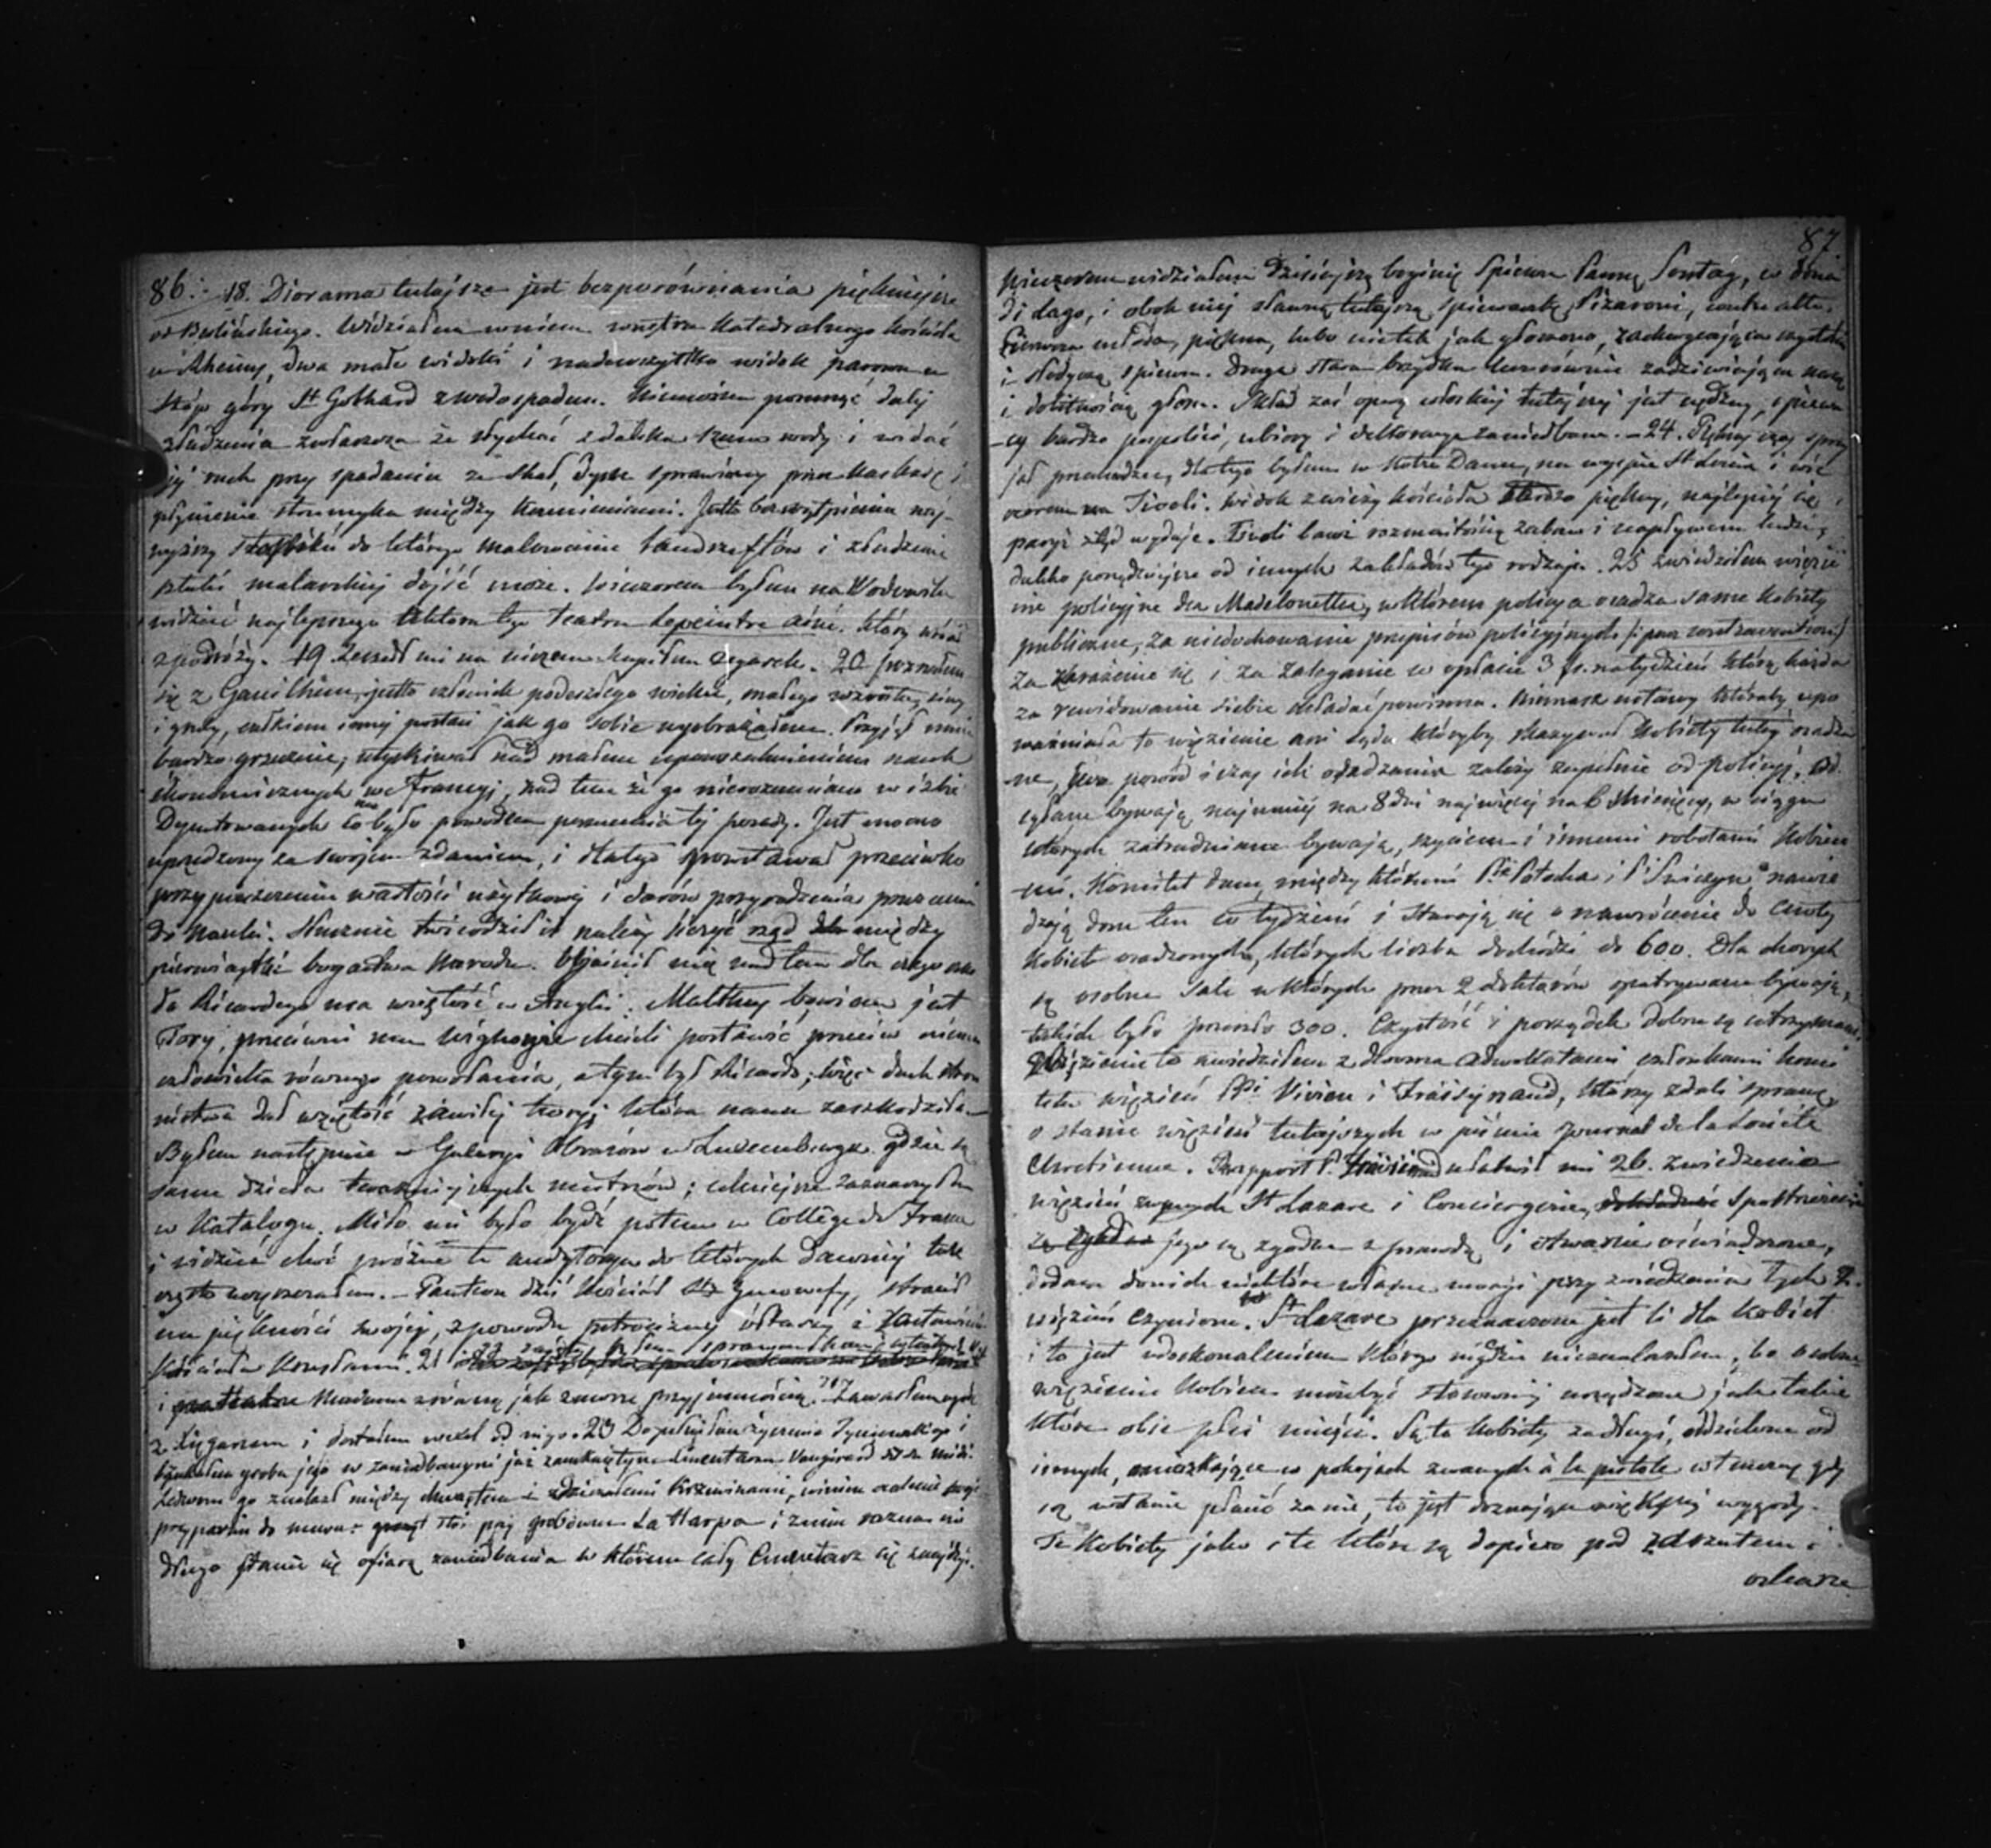 86. 18. Diorama tutejsze jest bez porównania piękniejsze
od Berlińskiego. Widziałem w niem wnętrze Katedralnego kościoła
w Rheims, dwa małe widoki i nadewszystko widok parowu u
stóp góry St Gothard z wodospadem. Niemożna posunąć dalej
złudzenia zwłaszcza że słychać z daleka szum wody i widać
jéj ruch przy spadaniu ze skał, dym sprawiony przez kaskadę i
płynienie strumyka między kamieniami. Jestto bez wątpienia naj-
wyższy stopień do którego malowanie landszaftów i złudzenie
sztuki malarskiej dojść może. Wieczorem byłem na Wodewilu
widzieć najlepszego aktora tego teatru Lepeintre ainé, który wrócił
z podróży. 19 Zeszedł mi na niczem kupiłem zegarek. 20 poznałem
się z Ganilhem, jestto człowiek podeszłego wieku, małego wzrostu, siwy
i gruby, całkiem innej postaci jak go sobie wyobrażałem. Przyjął mnie
bardzo grzecznie, utyskiwał nad małem upowszechnieniem nauk
ekonomicznych we Francyi, nad tem że go nierozumiano w izbie
Deputowanych co było powodem porzucenia tej posady. Jest mocno
uprzedzony za swojem zdaniem, i dlatego powstawał przeciwko
przypuszczeniu wartości użytkowej i darów przyrodzenia przezemnie
do Nauki. Słusznie twierdził iż należy liczyć rząd między
pierwiastki bogactwa Narodu. Objaśnił mię nad tem dla czego szko
ła Ricardego ma wziętość w Anglii. Malthus bowiem jest
Tory, przeciwni mu Wighowie chcieli postawić przeciw niemu
człowieka równego powołania, a tym był Ricardo; więc duch stron
nictwa dał wziętość zawiłej teoryi która nauce zaszkodziła.
Byłem następnie w Galeryi Obrazów w Luxemburgu gdzie są
same dzieła teraźniejszych mistrzów; celniejsze zaznaczyłem
w Katalogu. Miło mi było być potem w Collège de France
i widzieć choć próżne te audytorya do których dawniej tak
często uczęszczałem. – Panteon dziś kościół Ste Genowefy, stracił
na piękności swojej, z powodu
Kościoła Kopułami. 21
i z równą jak zawsze przyjemnością. Zawarłem ugodę
z Księgarzem i dostałem wexel od niego. 23 Dopełniłem życzenia
szukałem grobu jego w zaniedbanym już zamkniętym Cmentarzu Vaugirard
Ledwom go znalazł między chwastem i dziczałemi krzewinami,
przy grobowcu La Harpa i z nim razem nie
długo stanie się ofiarą zaniedbania w którem cały Cmentarz się znajduje.
87
Wieczorem widziałem dzisiejszą boginię śpiewu Pannę Sontag, w Dona
di lago, i obok niej sławną tutejszą śpiewaczkę Pizaroni, contre alto.
Pierwsza młoda, piękna, lubo nietak jak głoszono, zachwycająca czystością
i słodyczą śpiewu. Druga stara brzydka równie zadziwiająca mocą
i dobitnością głosu. Skład zaś opery włoskiej tutejszej jest nędzny, śpiewa
-cy bardzo pospolici, ubiory i dekoracye zaniedbane. – 24. Piękny czas sprzy
jał przechadzce, dlatego byłem w Notre Dame, na wyspie St Louis i wie
czorem na Tivoli. Widok z wieży kościoła bardzo piękny, najlepiej się
paryż ztąd wydaje. Tivoli bawi rozmaitością zabaw i napływem ludzi,
daleko porządniejsze od innych zakładów tego rodzaju. 25 Zwiedziłem więzie
nie policyjne des Madelonettes, w którem policya osadza same kobiety
publiczne, za niedochowanie przepisów policyjnych (: pour contravention:)
za zarażenie się i za zaleganie w opłacie 3 fr. na tydzień którą każda
za rewidowanie siebie składać powinna. Niemasz ustawy któraby upo
ważniała to więzienie ani sądu któryby skazywał kobiety tutaj osadzo
-ne, powód i czas ich osadzenia zależy zupełnie od policyi. Od
syłane bywają najmniej na 8 dni najwięcej na 6 Miesięcy, w ciągu
których zatrudniane bywają, szyciem i innemi robotami kobie
-mi. Komitet dam, między któremi Pni Potocka i Pi Świeczyn nawie
dzają dom ten co tydzień i starają się o nawrócenie do cnoty
kobiet osadzonych, których liczba dochodzi do 600. Dla chorych
są osobne sale w których przez 2 doktorów opatrywane bywają,
takich było przeszło 300. Czystość i porządek dobrze są utrzymane.
Więzienie to zwiedziłem z dwoma adwokatami członkami komi
tetu więzień Pp. Vivien i Fraissynaud, którzy zdali sprawę
o stanie więzień tutejszych w piśmie Journal de la Société
Chretienne. Rapport P. ułatwił mi 26. zwiedzenie
więzień zwanych St Lazare i Conciergerie, spostrzeżenia
jego są zgodne z prawdą i otwarcie oświadczone,
dodam do nich niektóre własne uwagi przy zwiedzaniu tych
więzień czynione. St Lazare przeznaczone jest li dla kobiet
i to jest udoskonaleniem którego nigdzie nieznalazłem, bo osobne
więzienie kobiece może być stosowniej urządzone jak takie
które obie płci mieści. Są tu kobiety za długi, oddzielone od
innych, mieszkające w pokojach zwanych à la pistole wtenczas gdy
są w stanie płacić za nie, to jest doznające większej wygody.
Te kobiety jako i te które są dopiero pod zarzutem i
oskarże